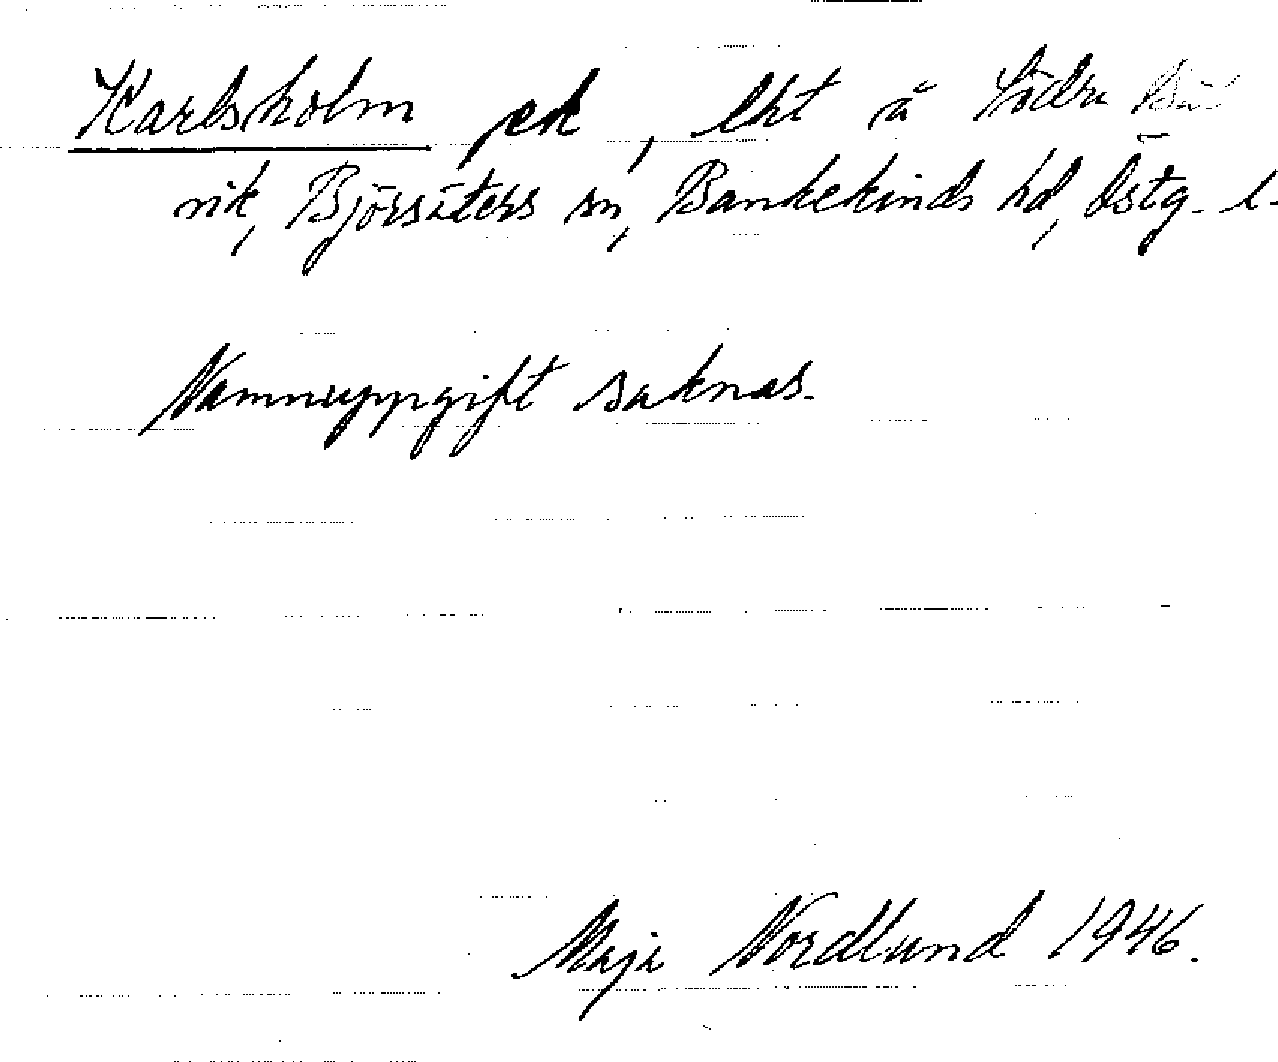 Karlsholm pd, lht å Södra
vik, Björsäters sn, Bankekinds hd, Östg. l.
Namnuppgift saknas.
Maja Nordlund 1946.